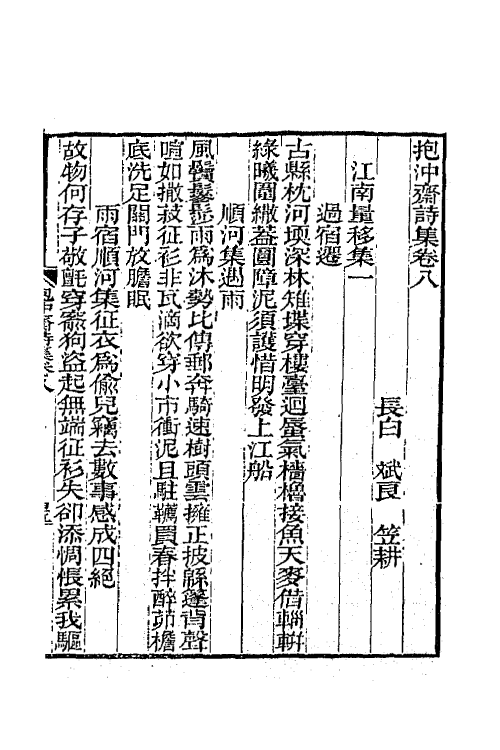 抱沖齋詩集卷八
長白　斌良　笠耕
江南量移集一
過宿遷
古縣枕河堧深林雉堞穿樓臺迥蜃氣檣櫓接魚天麥借輧輧
綠曦圓繖蓋圓障泥須護惜明發上江船
順河集遇雨
風鬟鬖髿雨為沐勢比傳郵奔騎速樹頭雲擁正披緜篷背聲
喧如撒菽征衫非瓦滴欲穿小市衝泥且駐韉買春拌醉茆檐
底洗足關門放膽眠
雨宿順河集征衣為偷兒竊去數事感成四絕
故物何存子敬氈穿窬狗盜起無端征衫失卻添惆悵累我驅
抱沖齋詩集卷八